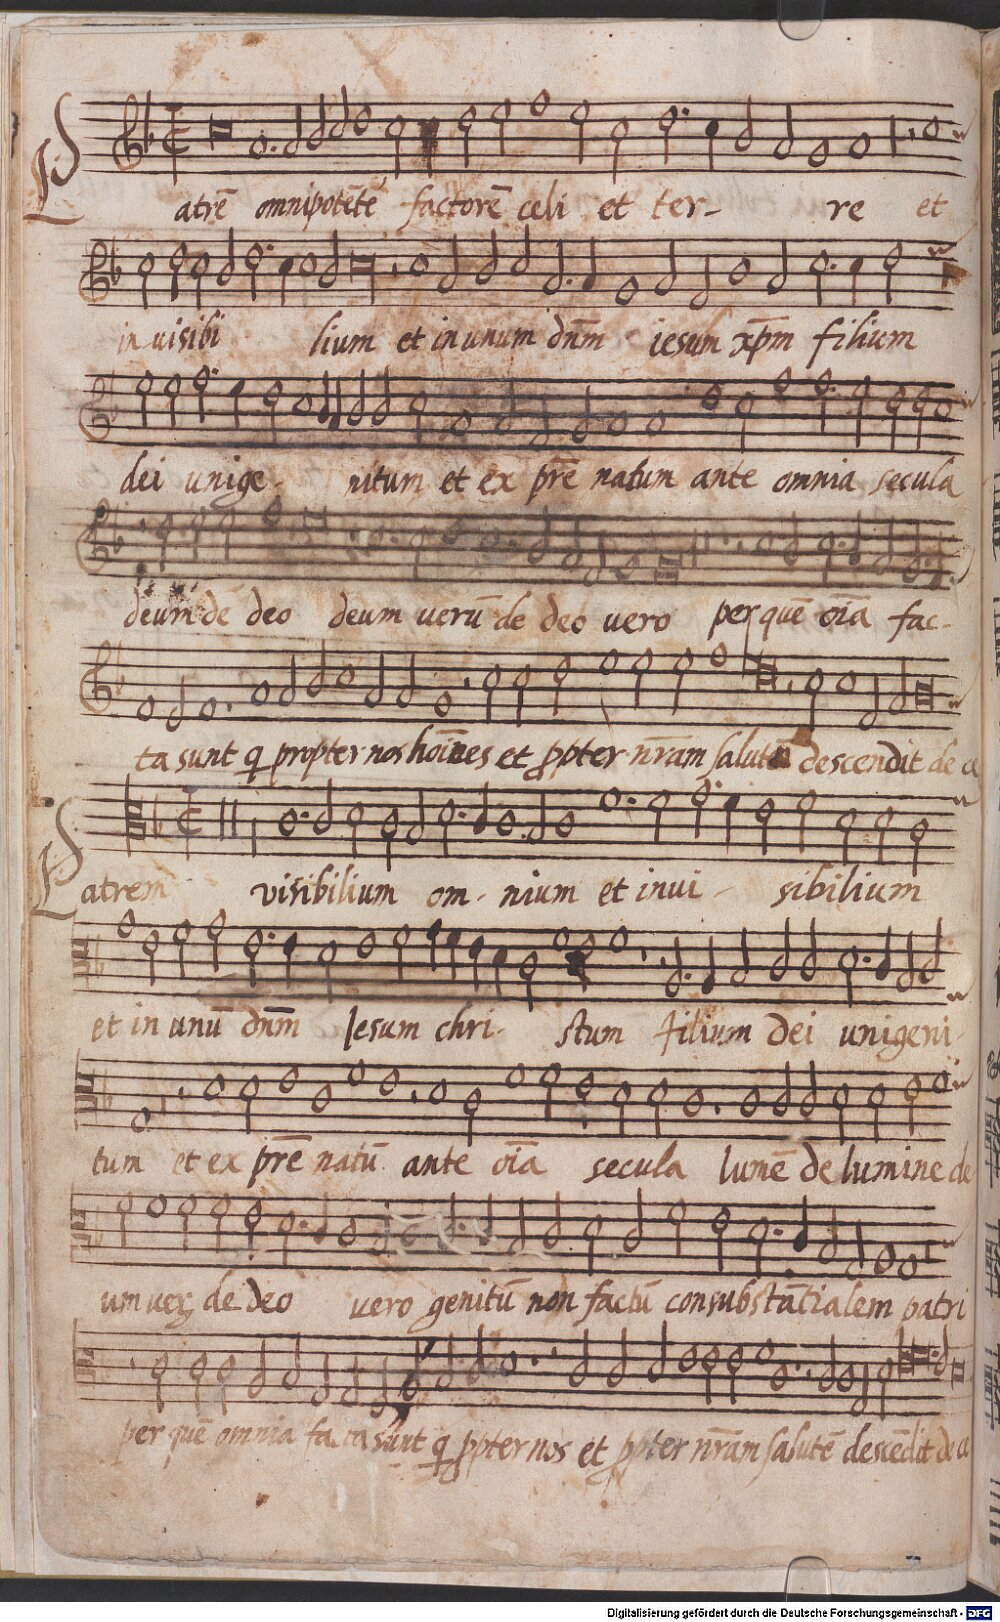 Patrē omnipotētē factorē celi et ter- re et
in visibi lium et in unum dn̄m iesum xp̄m filium
dei unige- nitum et ex pr̄e natum ante omnia secula
deum de deo deum verū de deo vero per quē oīa fac-
ta sunt q propter nos hoīnes et ꝓpter nr̄am salutē descendit de ce
Patrem visibilium om- nium et invi- sibilium
et in unū dn̄m Iesum chri- stum filium dei unigeni-
tum et ex pr̄e natū ante oīa secula lumē de lumine de
um veꝝ de deo vero genitū non factū consubstātialem patri
per quē omnia facta sūt q ꝓpter nos et ꝓpter nr̄am salutē descēdit de ce
Digitalisierung gefördert durch die Deutsche Forschungsgemeinschaft - DFG